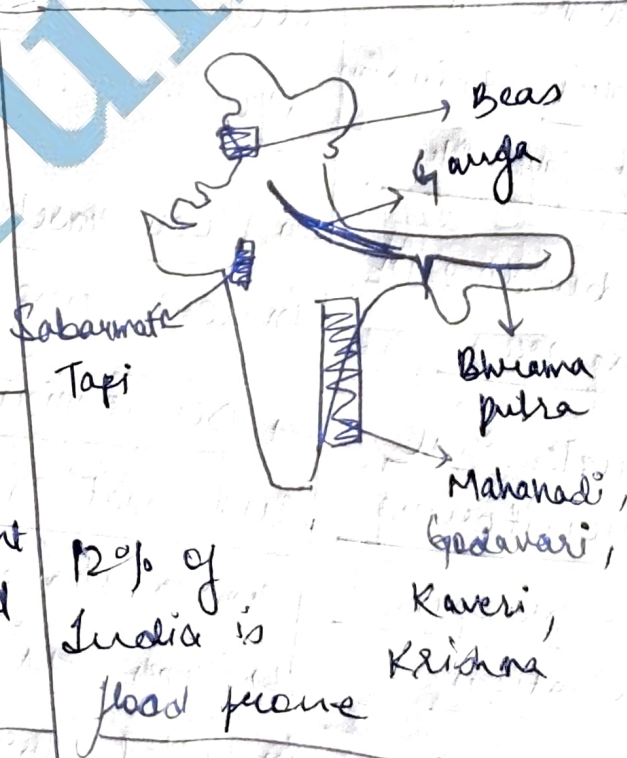 Beas
Ganga
Sabarmati
Tapi
Bhrama
putra
Mahanadi,
Godavari,
Kaveri,
Krishna
12% of
India is
flood prone